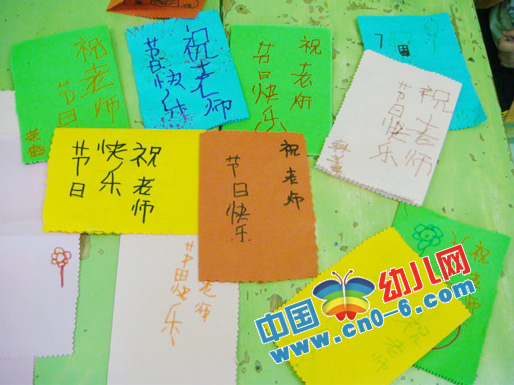 祝老师
节日
祝老师
节日快乐
祝老师
节日快乐
祝老师
节日快乐
祝老师
快乐
节日
祝老师
节日快乐
老师
节日快乐
祝
祝老师
中国幼儿网
www.cn0-6.com